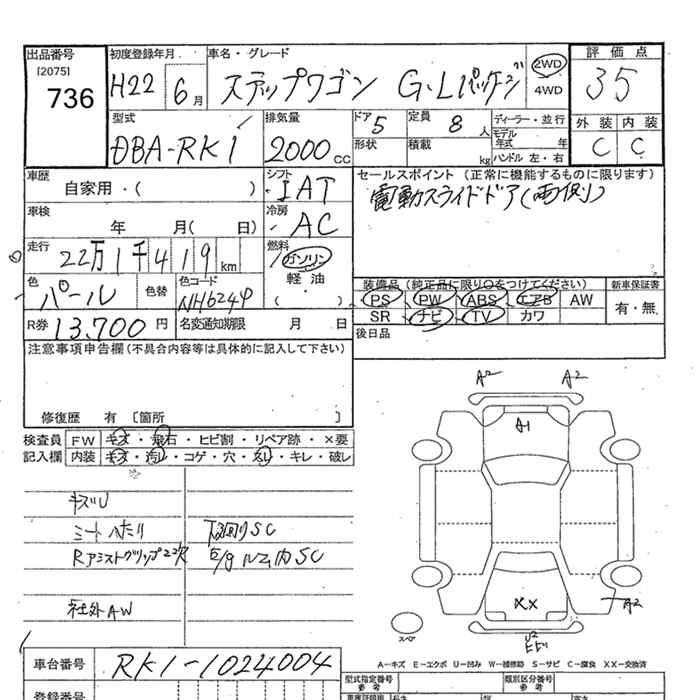 出品番号
[2075]
736
初度登録年月
H22 6月
車名・グレード
ステップワゴン G・Lパッケージ
2WD
4WD
評価点
35
外装 内装
C C
型式
DBA-RK1
排気量
2000cc
ドア 5
形状
定員 8人
積載 kg
ディーラー・並行
モデル年式 年
ハンドル 左・右
車歴
自家用・( )
シフト
IAT
セールスポイント (正常に機能するものに限ります)
電動スライドドア(両側)
車検
年 月( 日)
冷房
AC
走行
22万1千419km
燃料
ガソリン
軽油
( )
色
パール
色替
色コード
NH624P
装備品(純正品に限り○をつけてください)
PS PW ABS エアB AW
SR ナビ TV カワ
新車保証書
有・無
R券 13,700円
名変通知期限 月 日
後日品
注意事項申告欄(不具合内容等は具体的に記入して下さい)
修復歴 有 〔箇所 〕
検査員記入欄
FW キズ・飛石・ヒビ割・リペア跡・×要
内装 キズ・汚レ・コゲ・穴・スレ・キレ・破レ
キズU
シートヘタリ
Rアシストグリップ
社外AW
下回りSC
E/gルーム内SC
A2 A2
A1
XX
A2
U2
スペア
A-キズ E-エクボ U-凹み W-補修跡 S-サビ C-腐食 XX-交換済
車台番号
RK1-1024004
型式指定番号
参考
類別区分番号
参考
登録番号